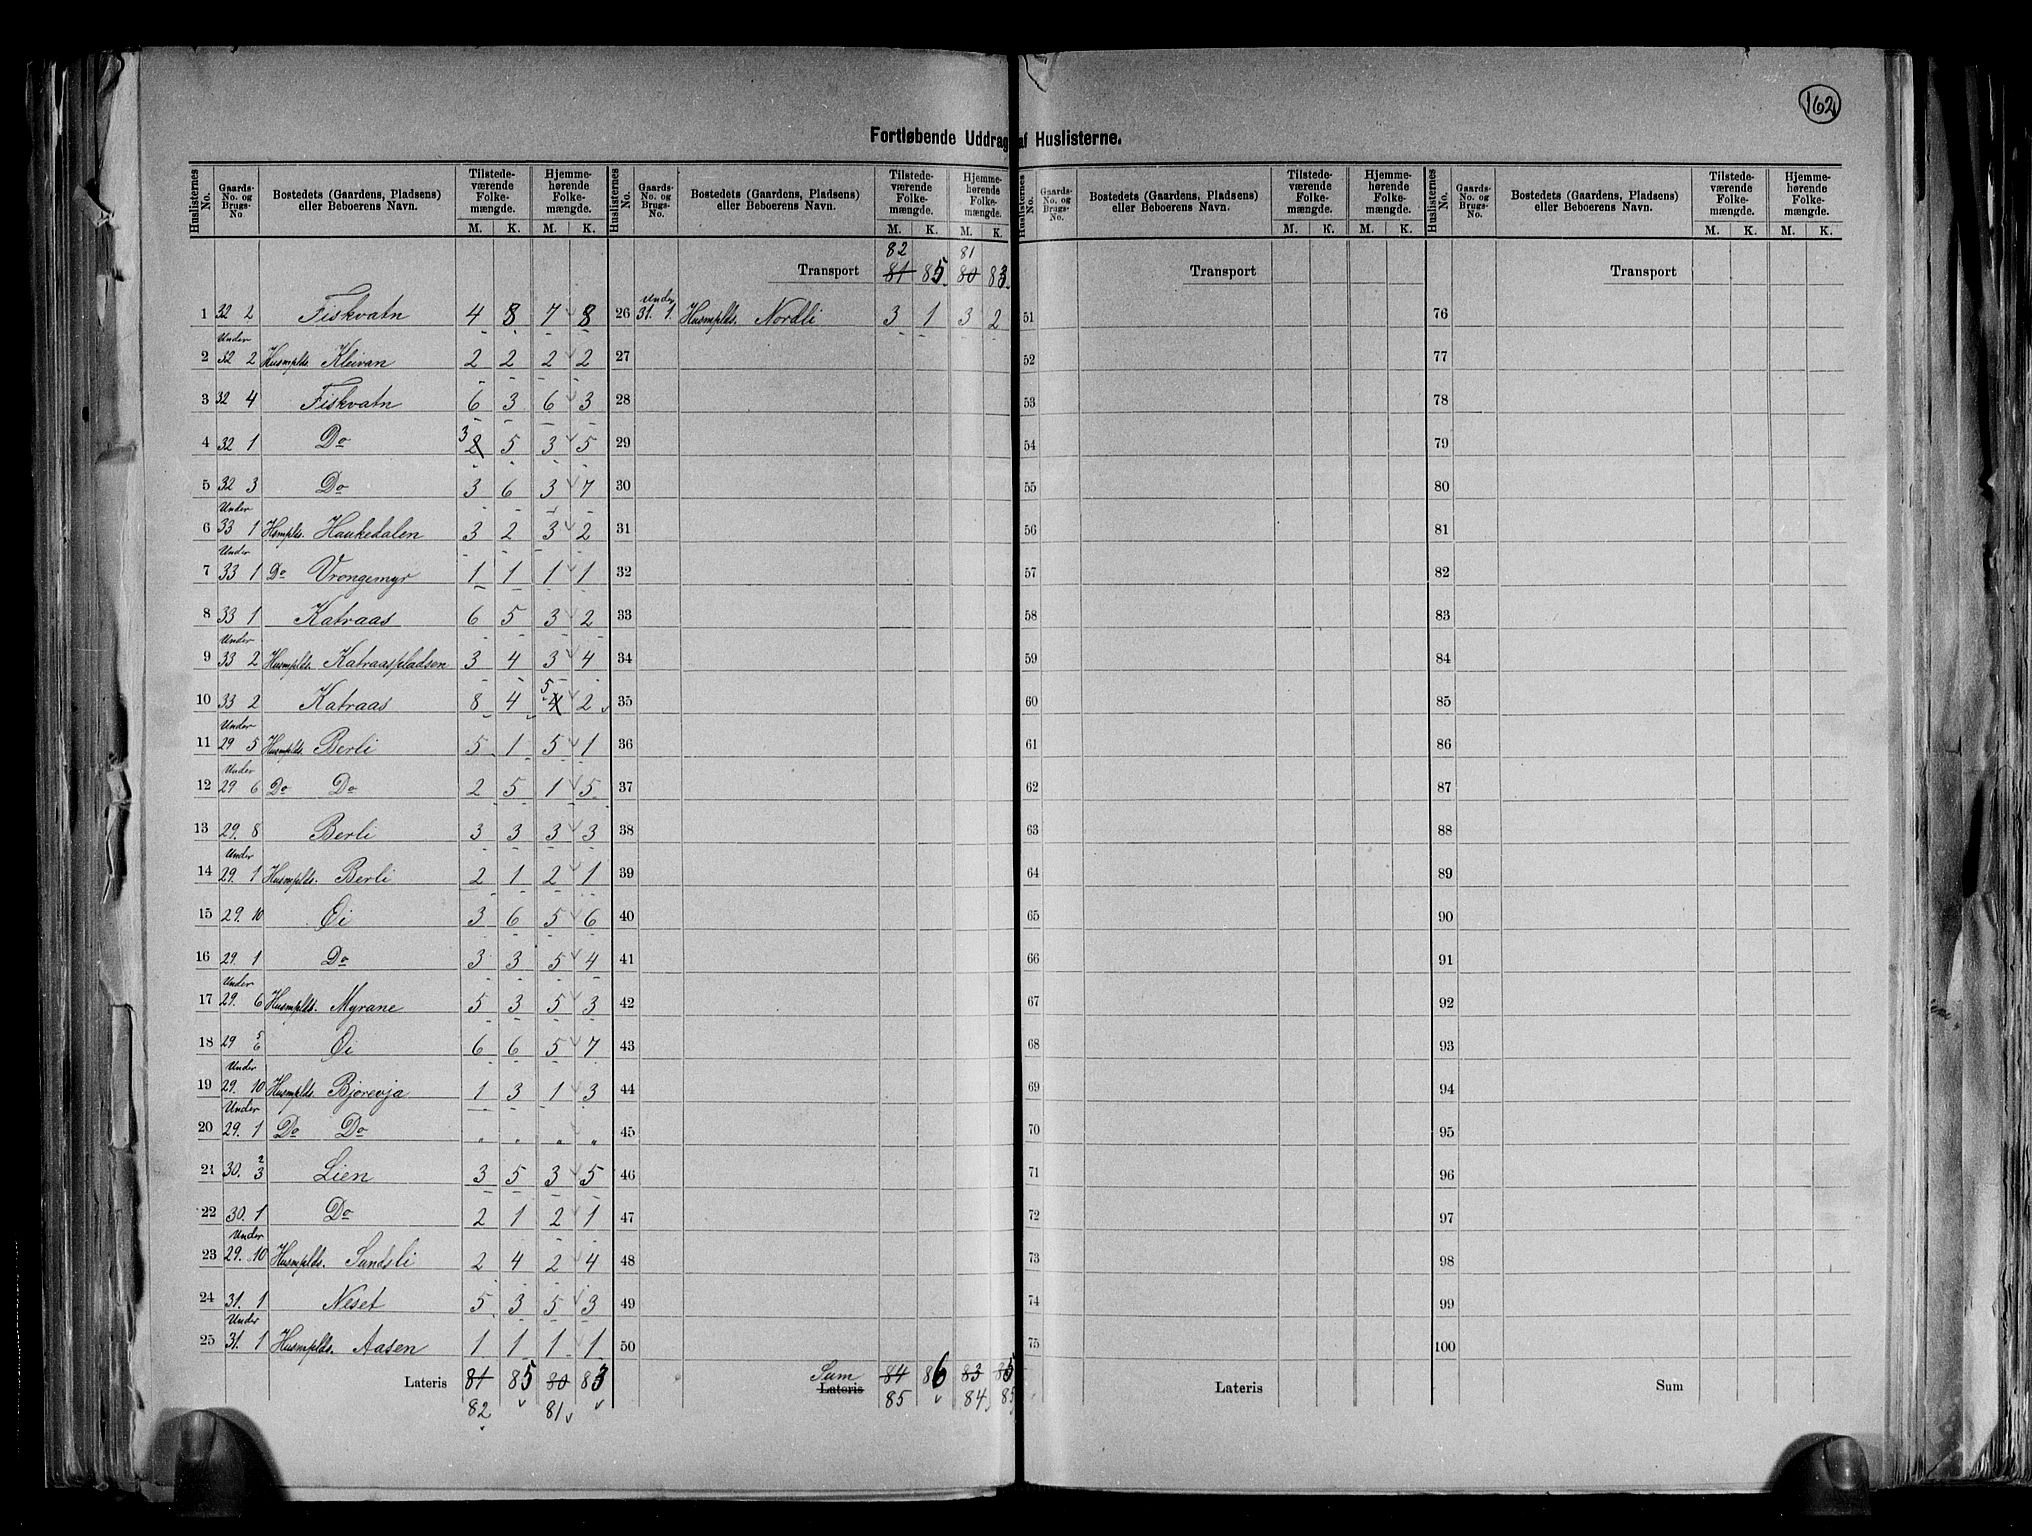 162
Fortløbende Uddrag af Huslisterne.
Huslisternes No. Gaards-No. og Brugs-No. Bostedets (Gaardens, Pladsens) eller Beboerens Navn. Tilstedeværende Folkemængde. M. K. Hjemmehørende Folkemængde. M. K.
1 32 2 Fiskvatn 4 8 7 8
2 Under 32 2 Husmplds. Kleivan 2 2 2 2
3 32 4 Fiskvatn 6 3 6 3
4 32 1 Do 2 3 5 3 5
5 32 3 Do 3 6 3 7
6 Under 33 1 Hsmplds. Haukedalen 3 2 3 2
7 Under 33 1 Do Vrongemyr 1 1 1 1
8 33 1 Katraas 6 5 3 2
9 Under 33 2 Husmplds. Katraaspladsen 3 4 3 4
10 33 2 Katraas 8 4 4 5 2
11 Under 29 5 Husmplds. Berli 5 1 5 1
12 Under 29 6 Do Do 2 5 1 5
13 29. 8 Berli 3 3 3 3
14 Under 29. 1 Husmplds. Berli 2 1 2 1
15 29. 10 Øi 3 6 5 6
16 29. 1 Do 3 3 5 4
17 Under 29. 6 Husmplds. Myrane 5 3 5 3
18 29 5 6 Øi 6 6 5 7
19 Under 29. 10 Husmplds. Bjørevja 1 3 1 3
20 Under 29. 1 Do Do " " " "
21 30. 2 3 Lien 3 5 3 5
22 30. 1 Do 2 1 2 1
23 Under 29. 10 Husmplds. Sundsli 2 4 2 4
24 31. 1 Neset 5 3 5 3
25 Under 31. 1 Husmplds. Aasen 1 1 1 1
Lateris 81 85 80 83
82 81
Huslisternes No. Gaards-No. og Brugs-No. Bostedets (Gaardens, Pladsens) eller Beboerens Navn. Tilstedeværende Folkemængde. M. K. Hjemmehørende Folkemængde. M. K.
82 81
Transport 81 85. 80 83.
26 Under 31. 1. Husmplds. Nordli 3 1 3 2
27
28
29
30
31
32
33
34
35
36
37
38
39
40
41
42
43
44
45
46
47
48
49
50
Sum Lateris 84 86 83 85
85 84 85
Huslisternes No. Gaards-No. og Brugs-No. Bostedets (Gaardens, Pladsens) eller Beboerens Navn. Tilstedeværende Folkemængde. M. K. Hjemmehørende Folkemængde. M. K.
Transport
51
52
53
54
55
56
57
58
59
60
61
62
63
64
65
66
67
68
69
70
71
72
73
74
75
Lateris
Huslisternes No. Gaards-No. og Brugs-No. Bostedets (Gaardens, Pladsens) eller Beboerens Navn. Tilstedeværende Folkemængde. M. K. Hjemmehørende Folkemængde. M. K.
Transport
76
77
78
79
80
81
82
83
84
85
86
87
88
89
90
91
92
93
94
95
96
97
98
99
100
Sum